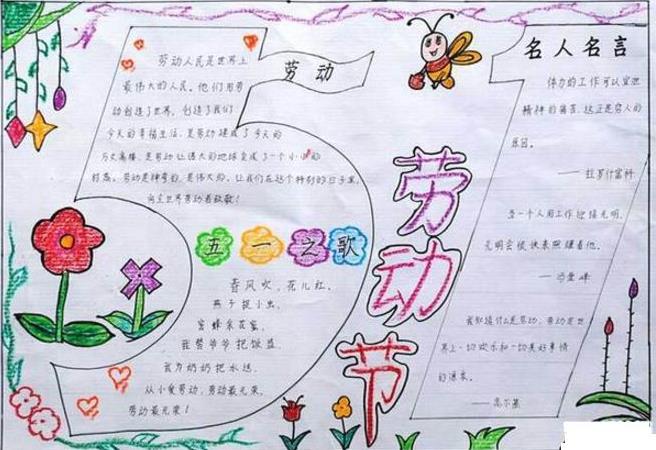 劳动
劳动人民是世界上
最伟大的人民。他们用劳
动创造了世界，创造了我们
今天的幸福生活，是劳动建成了今天的
万丈高楼，是劳动让伟大的地球变成了一个小小的
村落。劳动是神奇的，是伟大的。让我们在这个特别的日子里，
向全世界劳动者致敬！
五一之歌
春风吹，花儿红，
燕子捉小虫，
蜜蜂来花蜜，
我帮爷爷把饭盛，
我为奶奶把水送，
从小爱劳动，劳动最光荣，
劳动最光荣！
劳动节
名人名言
体力的工作可以宣泄
精神的痛苦，这正是穷人的
乐园。
——拉罗什富科
当一个人用工作迎接光明，
光明会很快来照耀着他。
——冯学峰
我知道什么是劳动，劳动是世
界上一切欢乐和一切美好事情
的源泉。
——高尔基